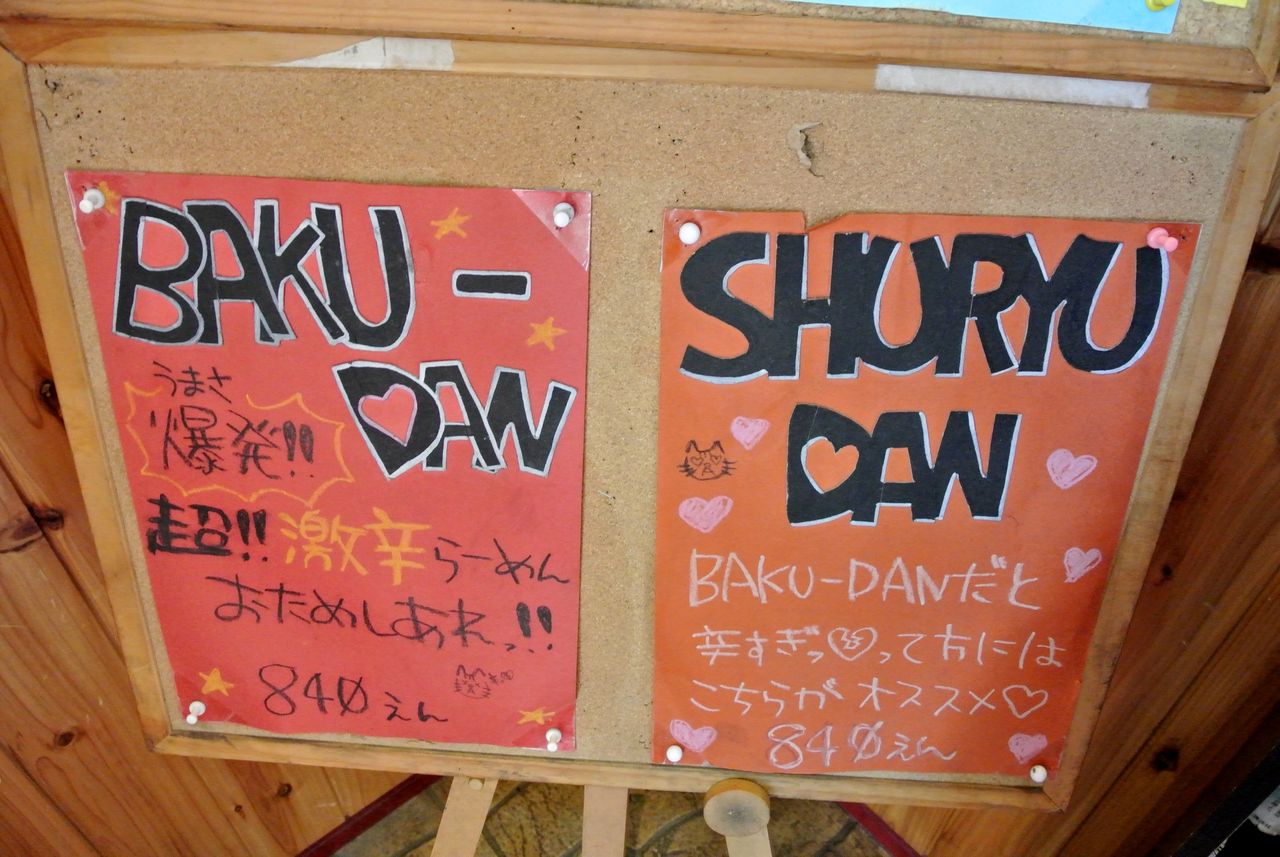 BAKU-
DAN
うまさ
爆発!!
超!!激辛らーめん
おためしあれっ!!
840えん
SHURYU
DAN
BAKU-DANだと
辛すぎっって方には
こちらがオススメ♡
840えん